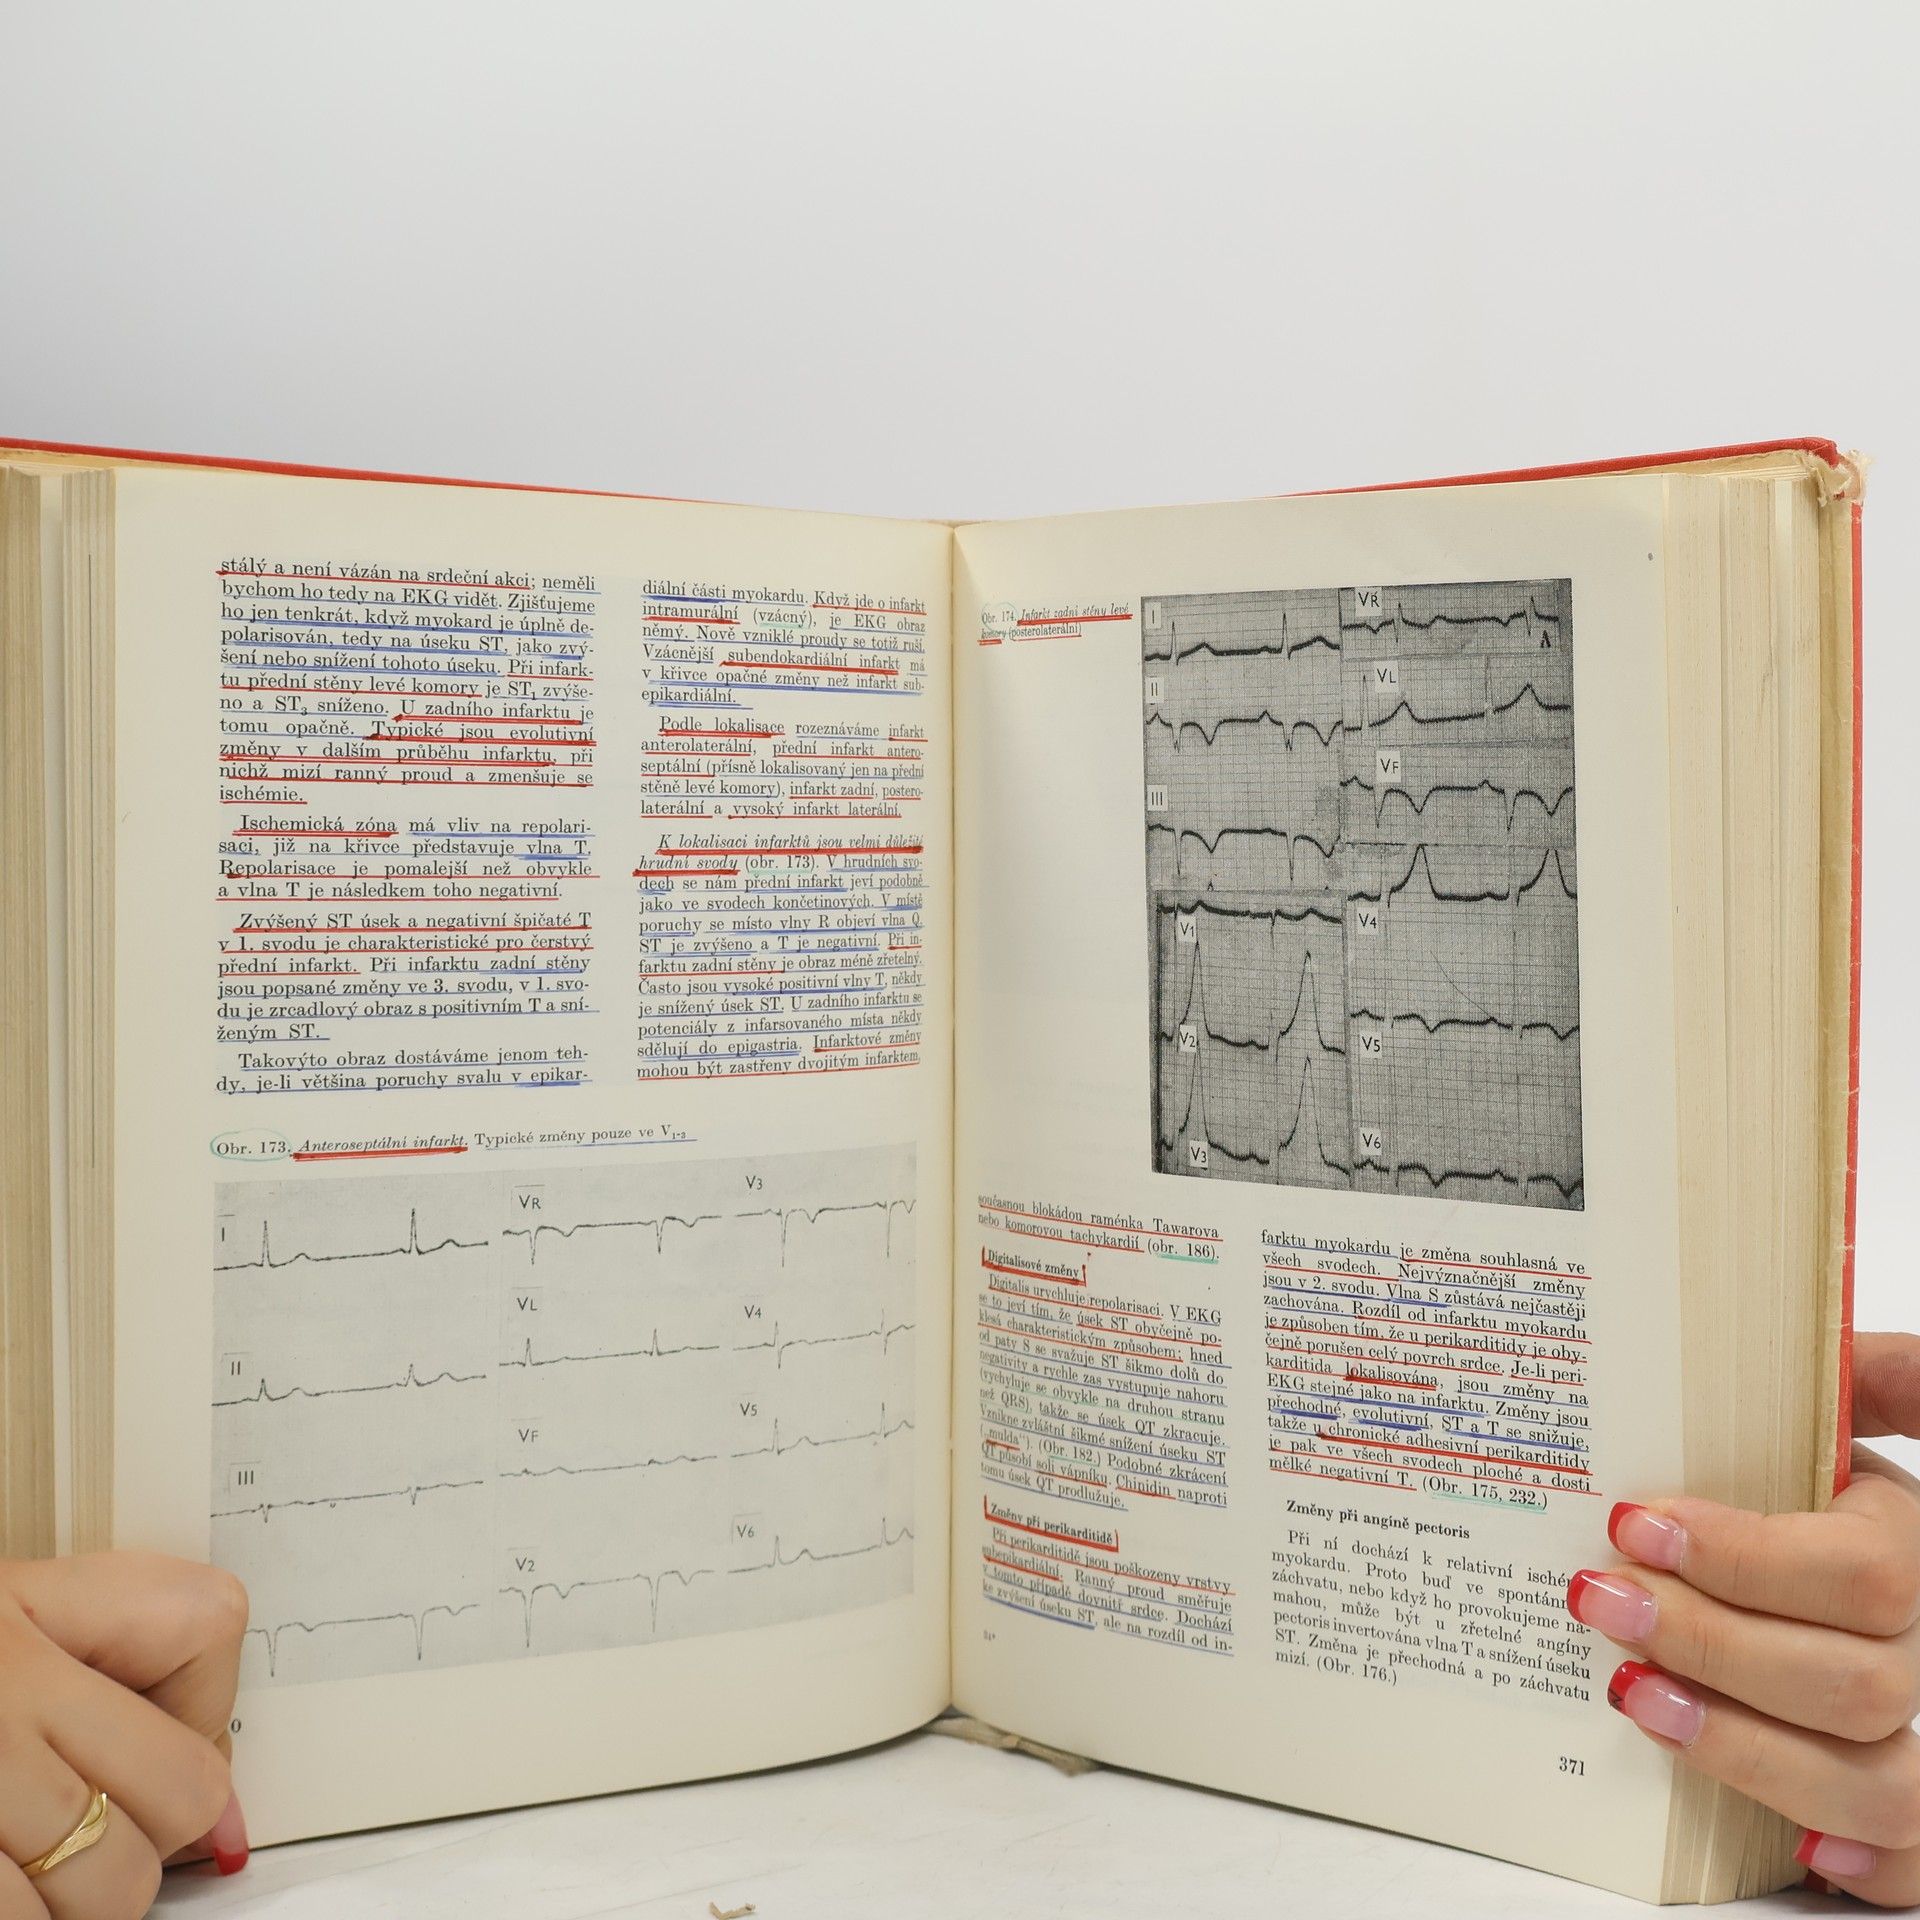 stálý a není vázán na srdeční akci; neměli
bychom ho tedy na EKG vidět. Zjišťujeme
ho jen tenkrát, když myokard je úplně de-
polarisován, tedy na úseku ST, jako zvý-
šení nebo snížení tohoto úseku. Při infark-
tu přední stěny levé komory je ST₁ zvýše-
no a ST₃ sníženo. U zadního infarktu je
tomu opačně. Typické jsou evolutivní
změny v dalším průběhu infarktu, při
nichž mizí ranný proud a zmenšuje se
ischémie.
Ischemická zóna má vliv na repolari-
saci, již na křivce představuje vlna T.
Repolarisace je pomalejší než obvykle
a vlna T je následkem toho negativní.
Zvýšený ST úsek a negativní špičaté T
v 1. svodu je charakteristické pro čerstvý
přední infarkt. Při infarktu zadní stěny
jsou popsané změny ve 3. svodu, v 1. svo-
du je zrcadlový obraz s positivním T a sní-
ženým ST.
Takovýto obraz dostáváme jenom teh-
dy, je-li většina poruchy svalu v epikar-
diální části myokardu. Když jde o infarkt
intramurální (vzácný), je EKG obraz
němý. Nově vzniklé proudy se totiž ruší.
Vzácnější subendokardiální infarkt má
v křivce opačné změny než infarkt sub-
epikardiální.
Podle lokalisace rozeznáváme infarkt
anterolaterální, přední infarkt antero-
septální (přísně lokalisovaný jen na přední
stěně levé komory), infarkt zadní, postero-
laterální a vysoký infarkt laterální.
K lokalisaci infarktů jsou velmi důležité
hrudní svody (obr. 173). V hrudních svo-
dech se nám přední infarkt jeví podobně
jako ve svodech končetinových. V místě
poruchy se místo vlny R objeví vlna Q.
ST je zvýšeno a T je negativní. Při in-
farktu zadní stěny je obraz méně zřetelný.
Často jsou vysoké positivní vlny T, někdy
je snížený úsek ST. U zadního infarktu se
potenciály z infarsovaného místa někdy
sdělují do epigastria. Infarktové změny
mohou být zastřeny dvojitým infarktem,
Obr. 173. Anteroseptální infarkt. Typické změny pouze ve V₁₋₃
I
VR
V3
VL
V4
II
V5
VF
III
V6
V2
0
Obr. 174. Infarkt zadní stěny levé
komory (posterolaterální)
I
VR
II
VL
VF
III
V1
V4
V2
V5
V3
V6
současnou blokádou raménka Tawarova
nebo komorovou tachykardií (obr. 186).
Digitalisové změny
Digitalis urychluje repolarisaci. V EKG
se to jeví tím, že úsek ST obyčejně po-
klesá charakteristickým způsobem; hned
od paty S se svažuje ST šikmo dolů do
negativity a rychle zas vystupuje nahoru
(vychyluje se obvykle na druhou stranu
než QRS), takže se úsek QT zkracuje.
Vznikne zvláštní šikmé snížení úseku ST
(„mulda“). (Obr. 182.) Podobné zkrácení
QT působí soli vápníku. Chinidin naproti
tomu úsek QT prodlužuje.
Změny při perikarditidě
Při perikarditidě jsou poškozeny vrstvy
subepikardiální. Ranný proud směřuje
v tomto případě dovnitř srdce. Dochází
ke zvýšení úseku ST, ale na rozdíl od in-
24*
farktu myokardu je změna souhlasná ve
všech svodech. Nejvýznačnější změny
jsou v 2. svodu. Vlna S zůstává nejčastěji
zachována. Rozdíl od infarktu myokardu
je způsoben tím, že u perikarditidy je oby-
čejně porušen celý povrch srdce. Je-li peri-
karditida lokalisována, jsou změny na
EKG stejné jako na infarktu. Změny jsou
přechodné, evolutivní, ST a T se snižuje,
takže u chronické adhesivní perikarditidy
je pak ve všech svodech ploché a dosti
mělké negativní T. (Obr. 175, 232.)
Změny při angíně pectoris
Při ní dochází k relativní
myokardu. Proto buď ve
záchvatu, nebo když ho provokujeme ná-
mahou, může být u zřetelné angíny
pectoris invertována vlna T a snížení úseku
ST. Změna je přechodná a po záchvatu
mizí. (Obr. 176.)
371